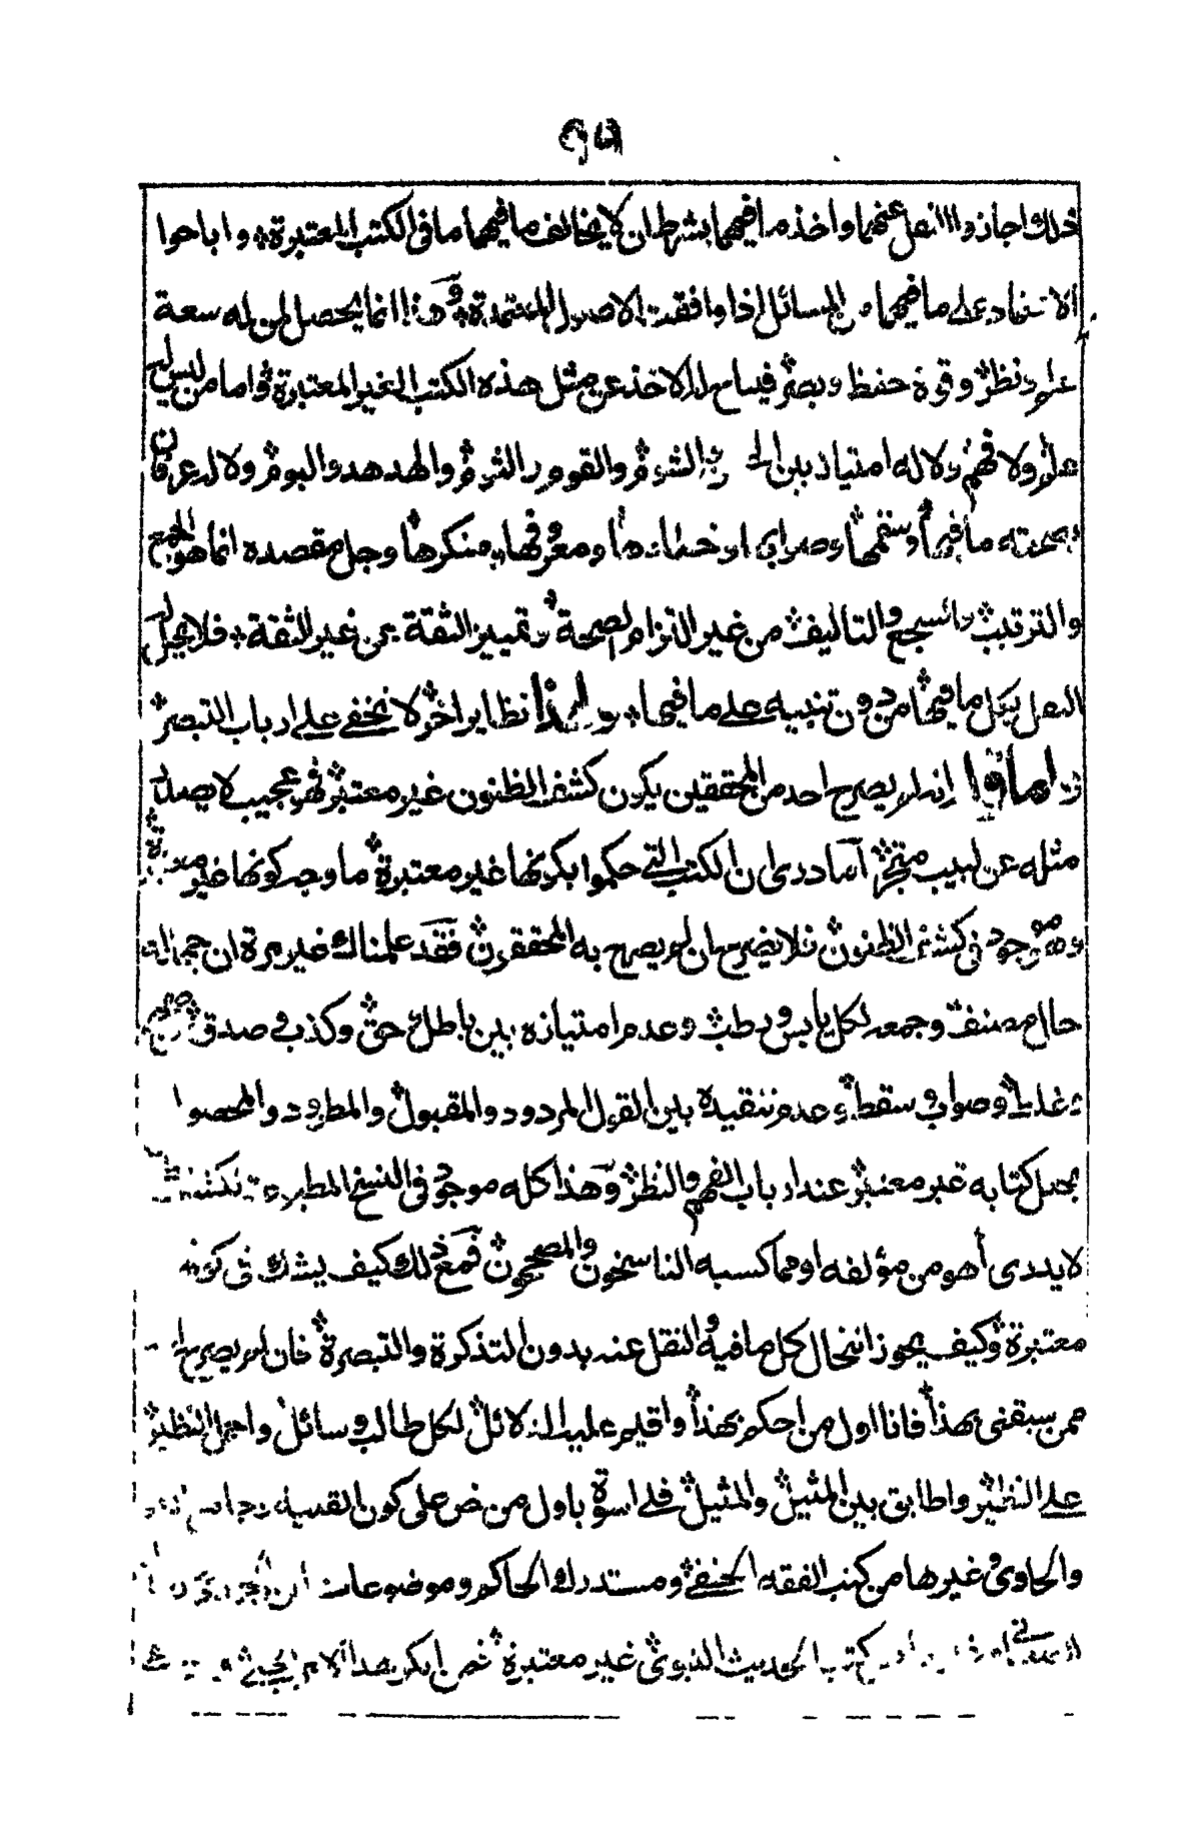 ذلك اجازوا النقل عنهما واخذ ما فيهما بشرط ان لا يخالف ما فيهما ما فى الكتب المعتبرة واباحوا
الاعتماد على ما فيهما من المسائل اذا وافقت الاصول المعتمدة وهذا انما يحصل لمن له سعة
علم ونظر وقوة حفظ وبصر فيباح له الاخذ عن مثل هذه الكتب الغير المعتبرة واما من ليس له
علم ولا فهم ولا له امتياز بين الشوم والقوم والثوم والهدهد والبوم ولا له عرفان
بصحة ما فيها وسقمها وصوابها وخطائها ومعروفها ومنكرها وجل مقصده انما هو الجمع
والترتيب والسجع والتاليف من غير التزام الصحة وتمييز الثقة عن غير الثقة فلا يحل له
النقل بكل ما فيها من دون تنبيه على ما فيها ولهذا نظاير اخر لا تخفى على ارباب التبصر
واما قوله انه لم يصرح احد من المحققين بكون كشف الظنون غير معتبر فهو عجيب لا يصدر
مثله عن لبيب متبحر اما درى ان الكتب التى حكموا بكونها غير معتبرة ما وجه كونها غير معتبرة
وهو موجود فى كشف الظنون فلا يضره ان لم يصرح به المحققون فقد علمناك غير مرة ان جهالة
حال مصنف وجمعه لكل يابس ورطب وعدم امتيازه بين باطل وحق وكذب وصدق وصحيح
وغلط وصواب وسقط وعدم تنقيده بين القول المردود والمقبول والمطرود والمحصول
يجعل كتابه غير معتبر عند ارباب الفهم والنظر وهذا كله موجود فى النسخ المطبوعة لكشف
لا يدرى أهو من مؤلفه او مما كسبه الناسخون والمصححون فمع ذلك كيف يشك فى كونه
معتبرة وكيف يجوز انتحال كل ما فيه والنقل عنه بدون التذكرة والتبصرة فان لم يصرح احد
ممن سبقنى بهذا فانا اول من احكم بهذا واقيم عليه الدلائل لكل طالب وسائل واحمل النظير
على النظير واطابق بين المثيل والمثيل فلى اسوة باول من نص على كون القنية
والحاوى وغيرها من كتب الفقه الحنفى ومستدرك الحاكم وموضوعات ابن الجوزى
كتب الحديث النبوى غير معتبرة